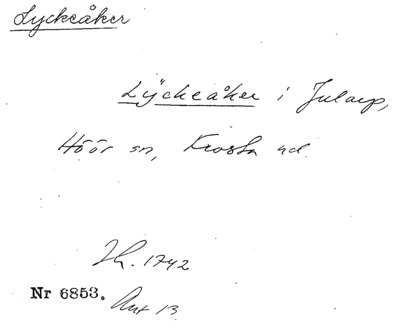 Lyckeåker
Lÿckeåker i Jularp,
Höör sn, Frosta hd.
Jb. 1742
Nr 6853. Ant 13